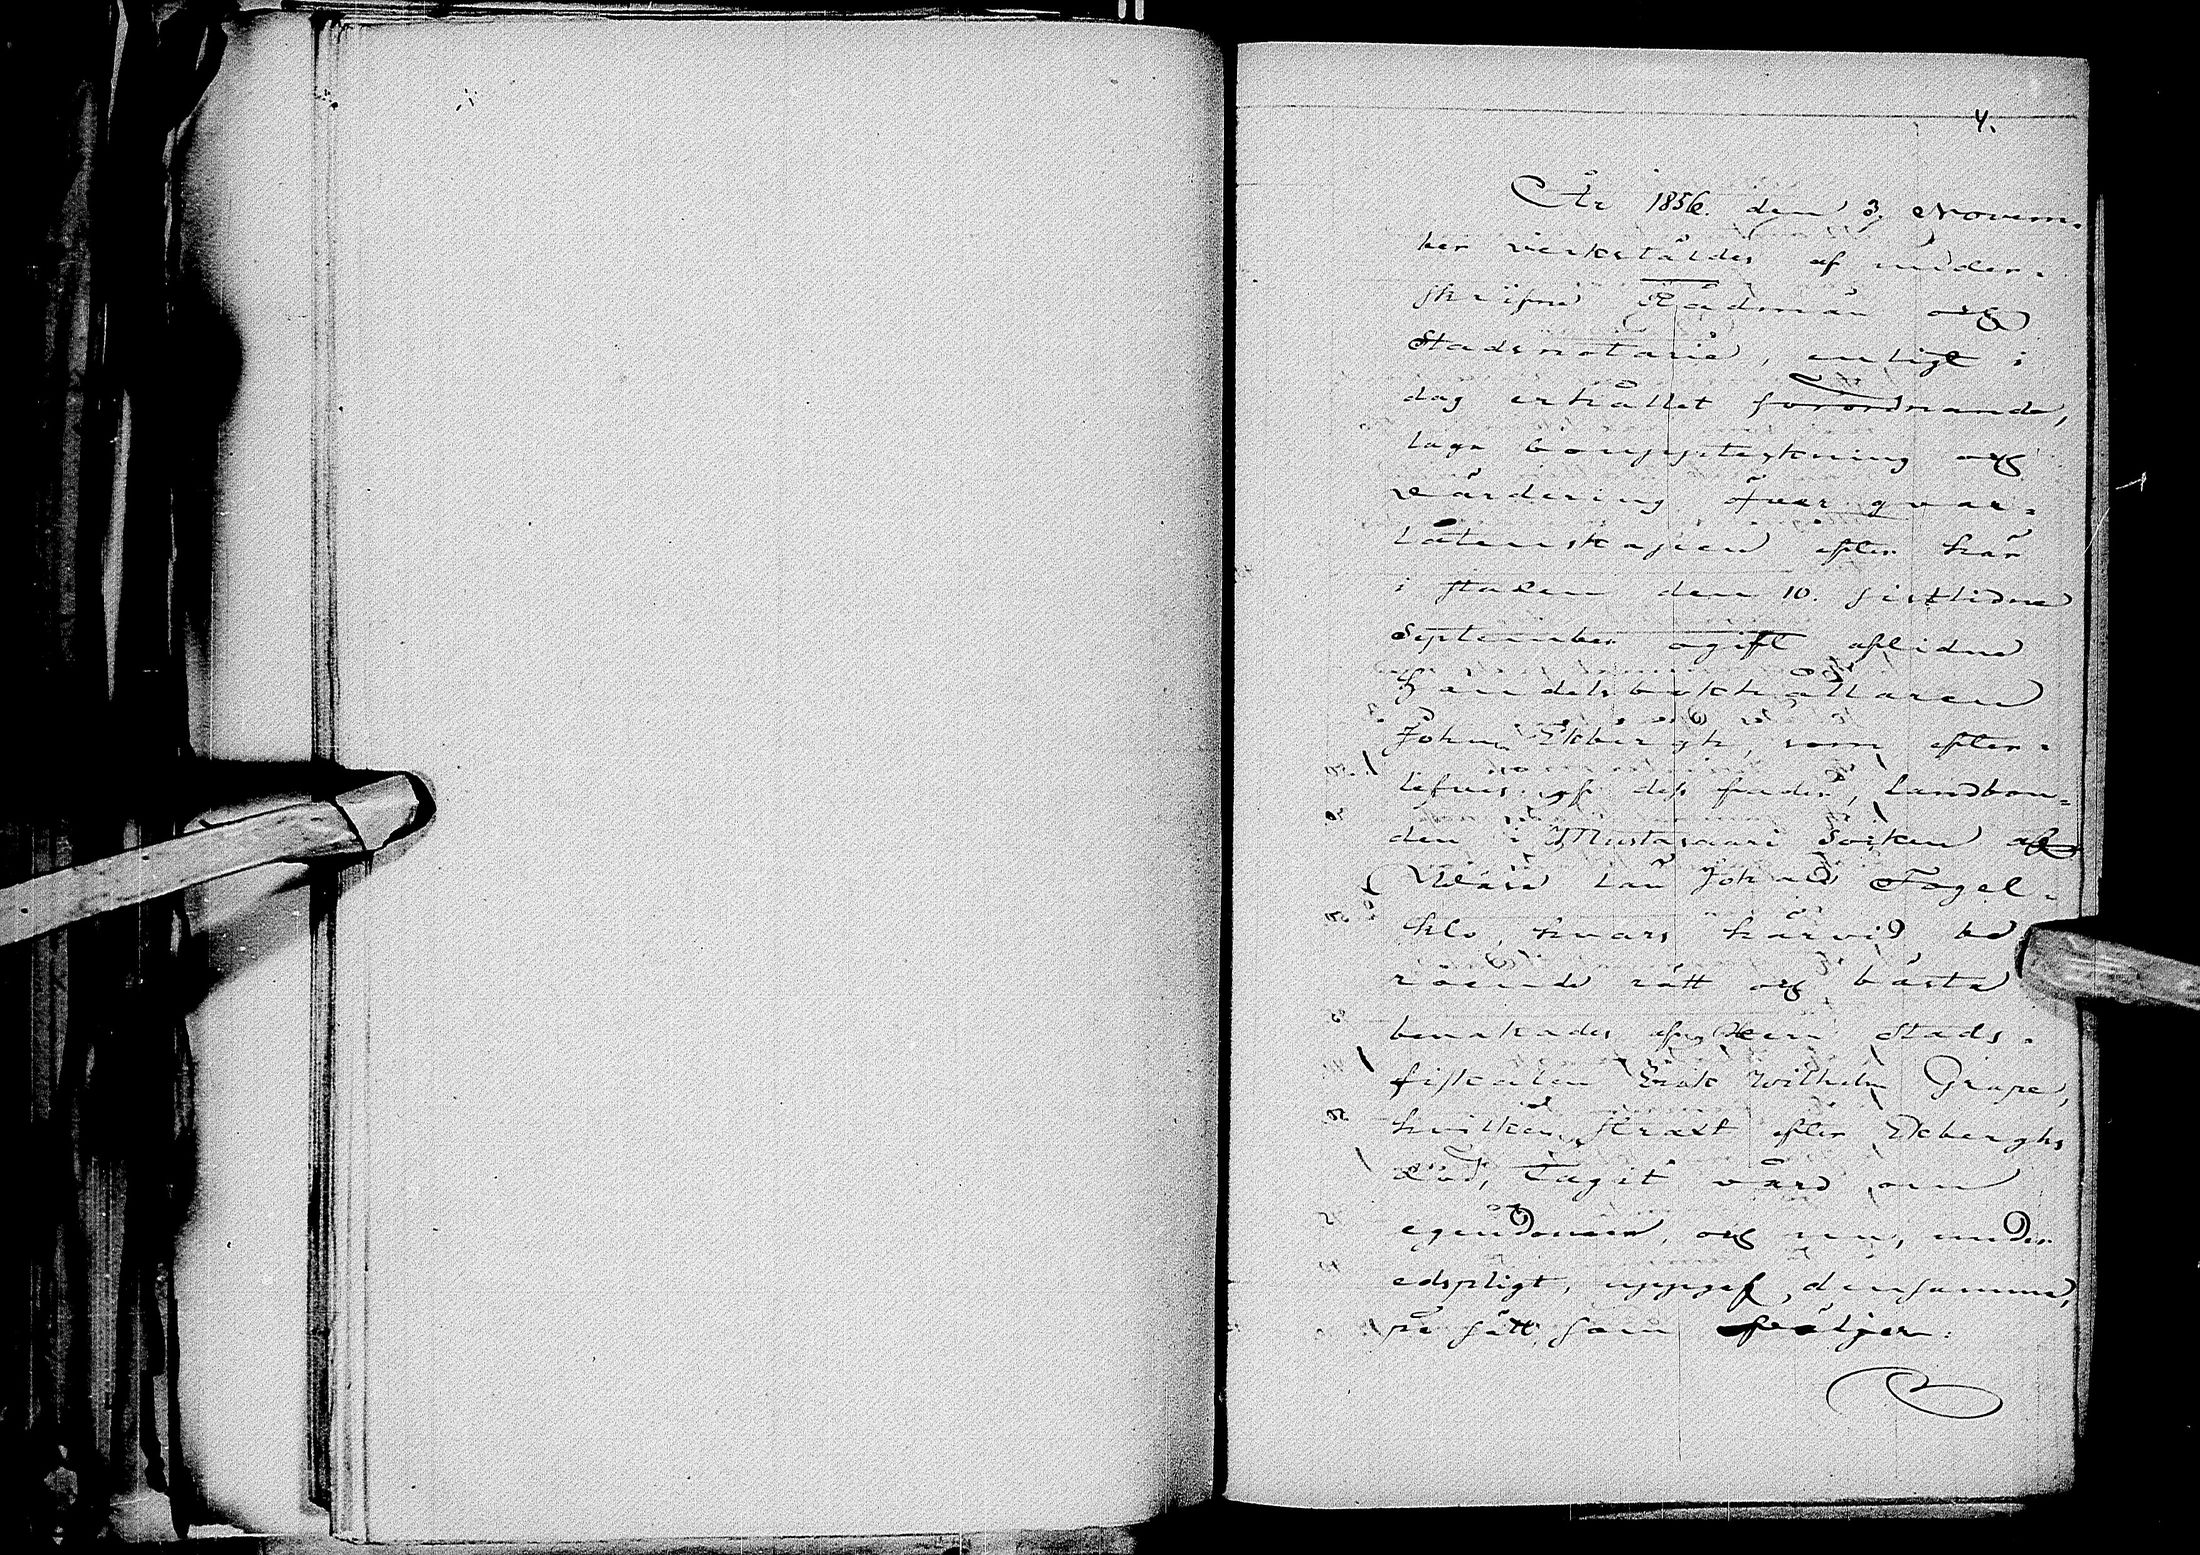 4.
År 1856. den 3. Novem-
ber verkstäldes af under-
skrifne Rådman och
Stadsnotarie, enligt i
dag erhållet förordnande,
laga bouppteckning och
värdering öfver qvar-
låtenskapen efter här
i staden den 10. sistlidne
September ogift aflidne
Handelsbokhållaren
Johan Ekbergh, som efter-
lefves af dess fader, Landbon-
den i Mustasaari Socken af
Wasa Län Johan Fogel-
klo, hvars härvid be
roende rätt och bästa
bevakades af Herr Stads-
fiskalen Erik Wilhelm Grape,
hvilken, strax efter Ekberghs
död, tagit vård om
egendomen, och nu, under
edspligt, uppgaf densamma,
på sätt som följer: